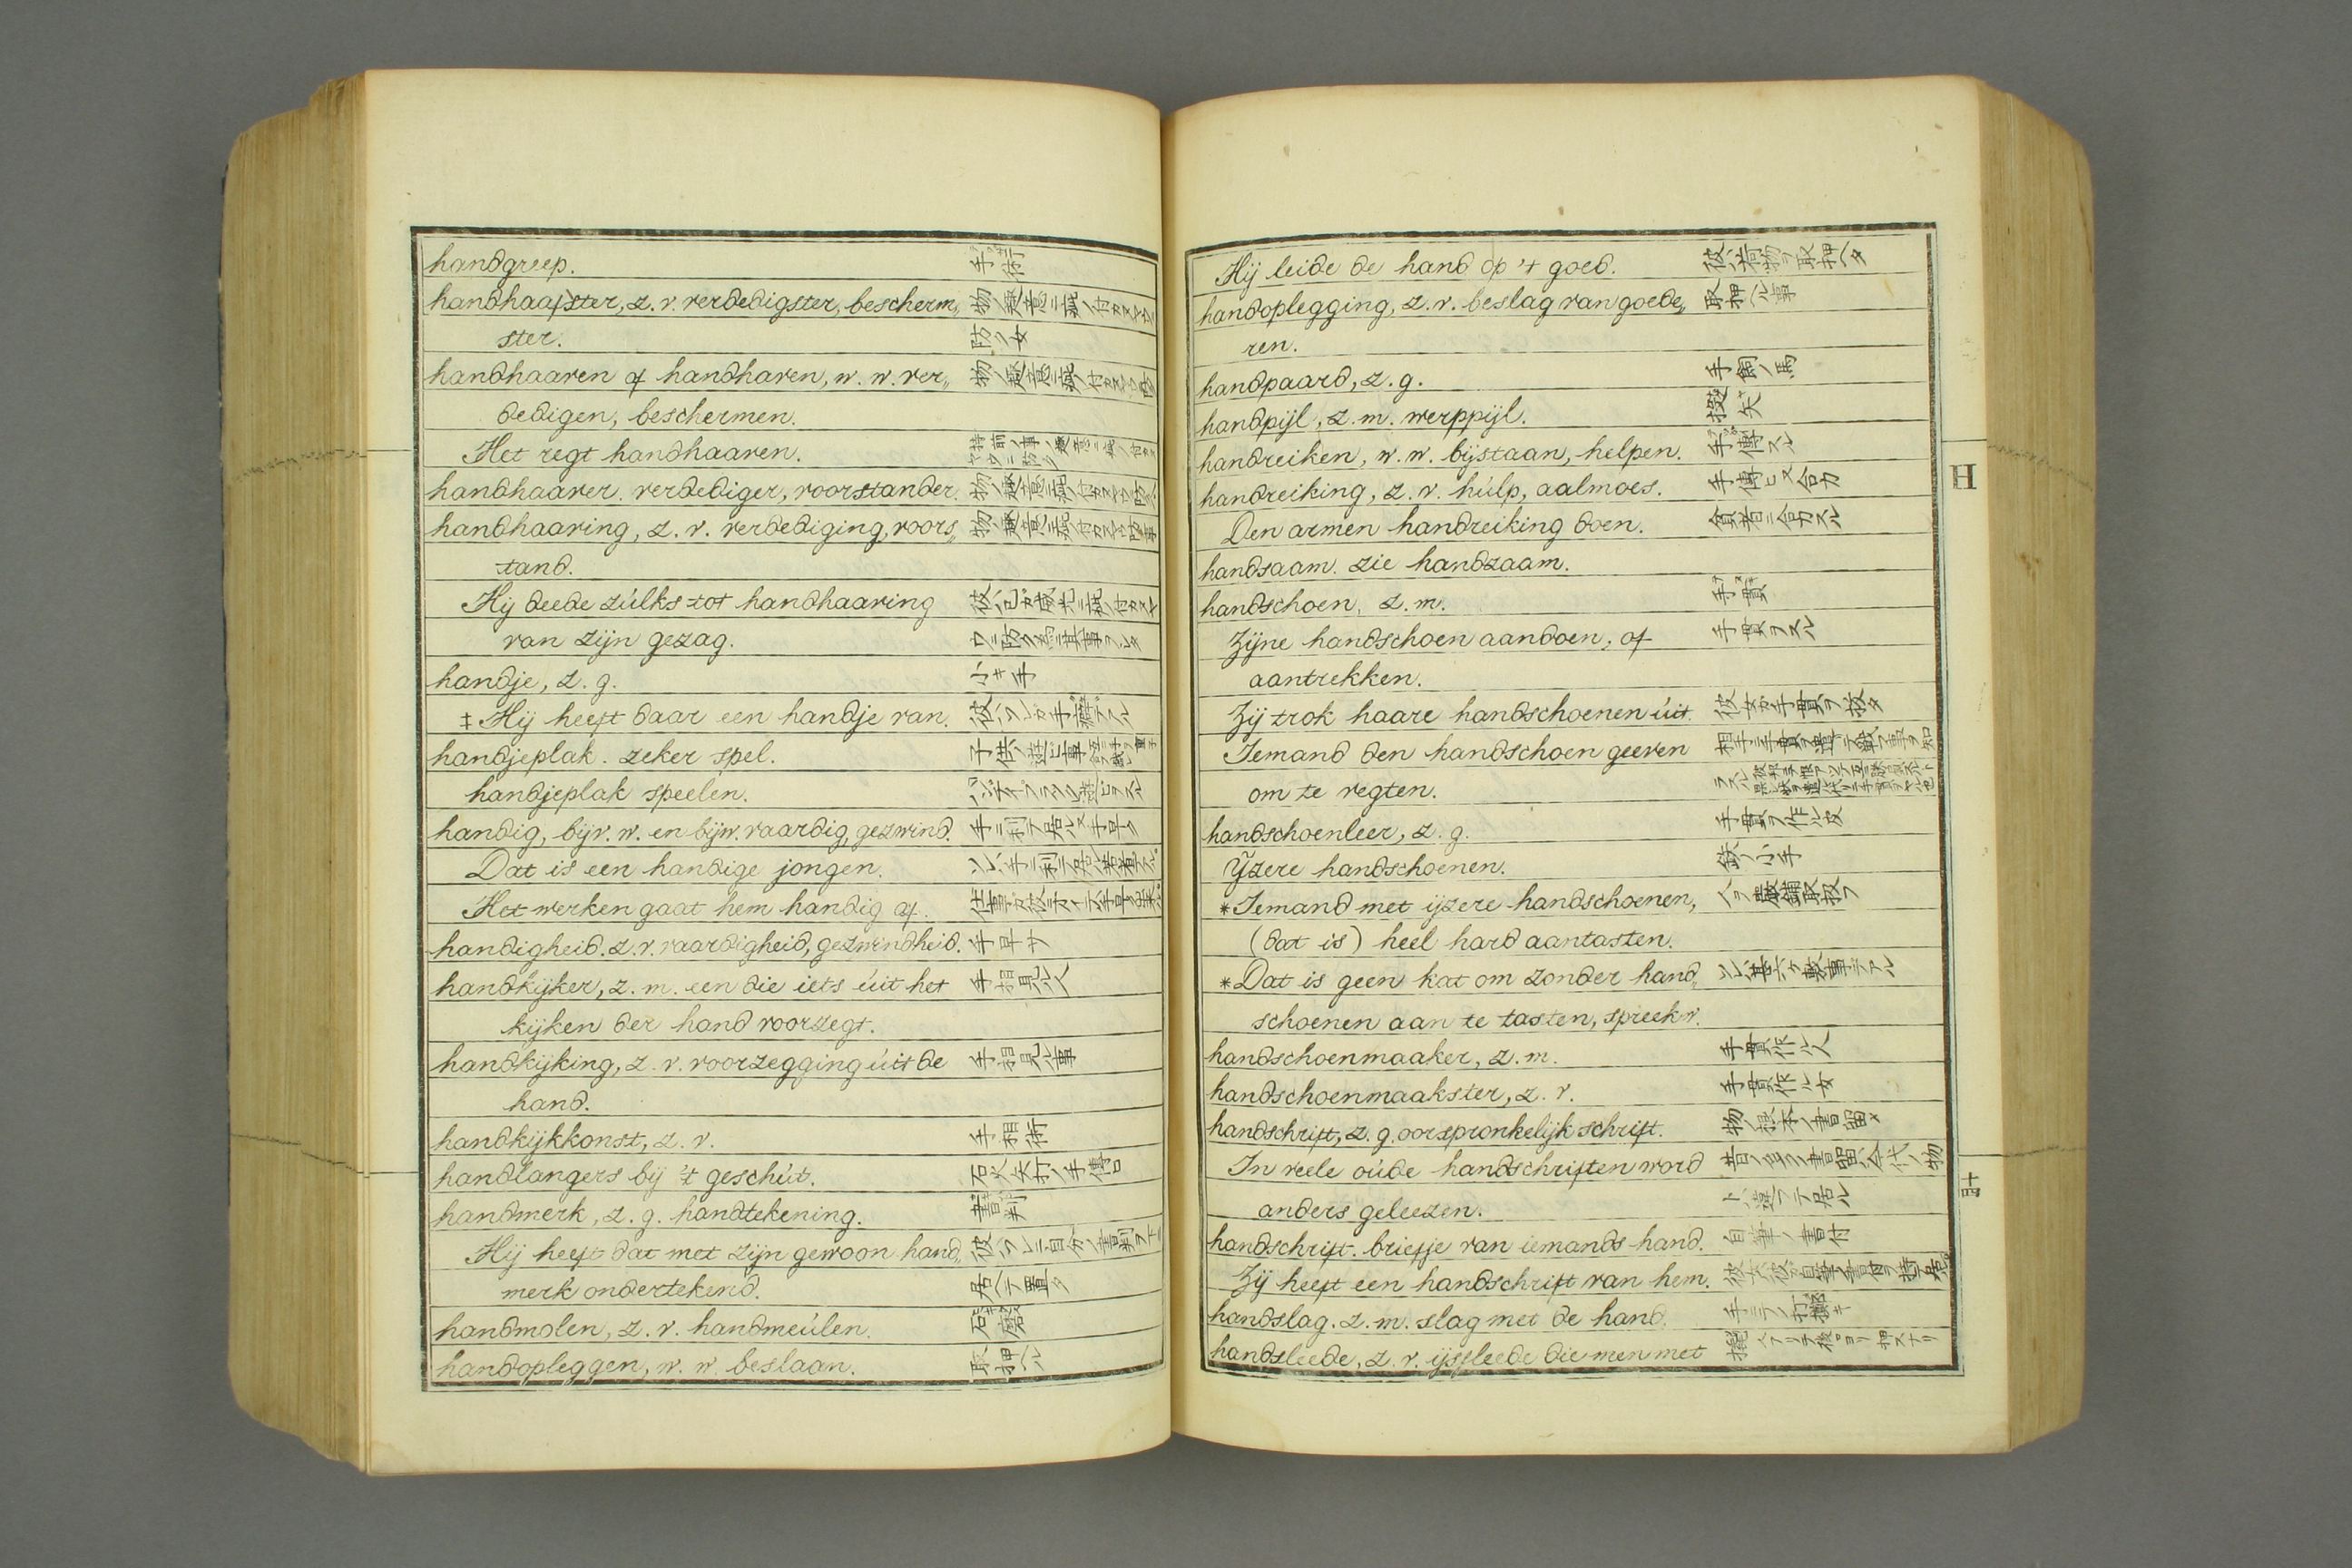 handgreep.
handhaafster, z. v. verdedigster, bescherm„ 物ノ趣意ニ疵ノ付カヌヤウニ
ster. 防ク女
handhaaven of handhaven, w. w. ver„ 物ノ趣意ニ疵ノ付カヌヤウニ防ク
dedigen, beschermen.
Het regt handhaaven.
handhaaver. verdediger, voorstander. 物ノ趣意ニ疵ノ付カヌヤウニ防ク人
handhaaving, z. v. verdediging, voors„ 物ノ趣意ニ疵ノ付カヌヤウニ防ク事
tand.
Hij deede zúlks tot handhaaving
van zijn gezag. ウニ防ク為ニ其事ヲシタ
handje, z. g. 小キ手
‡ Hij heeft daar een handje van. 彼ハソレガ手癖テアル
handjeplak. zeker spel. 子供ノ遊ビ事
handjeplak speelen.
handig, bijv. w. en bijw. vaardig, gezwind. 手ニ利テ居ル又手早ク
Dat is een handige jongen.
Het werken gaat hem handig af.
handigheid. z. v. vaardigheid, gezwindheid. 手早サ
handkijker, z. m. een die iets úit het 手相見ル人
kijken der hand voorzegt.
handkijking, z. v. voorzegging úit de 手相見ル事
hand.
handkijkkonst, z. v. 手相術
handlangers bij 't geschút. 石火矢打ノ手傳
handmerk, z. g. handtekening. 書判
Hij heeft dat met zijn gewoon hand„ 彼ハソレニ自分ノ書判ヲ
merk ondertekend. 居ヘテ置タ
handmolen, z. v. handmeúlen. 石磨
handopleggen, w. w. beslaan. 取押ヘル
Hij leide de hand op 't goed. 彼ハ荷物ヲ取押ヘタ
handoplegging, z. v. beslag van goede„ 取押ヘル事
ren.
handpaard, z. g. 手飼ノ馬
handpijl, z. m. werppijl. 投矢
handreiken, w. w. bijstaan, helpen. 手傳スル
handreiking, z. v. húlp, aalmoes. 手傳ヒ又合力
Den armen handreiking doen. 貧者ニ合力スル
handsaam. zie handzaam.
handschoen, z. m. 手貫
Zijne handschoen aandoen, of 手貫ヲスル
aantrekken.
Zij trok haare handschoenen úit. 彼女ガ手貫ヲ拔タ
Iemand den handschoen geeven
om te vegten.
handschoenleer, z. g. 手貫ヲ作ル皮
Yzere handschoenen. 鉄ノ小手
*Iemand met ijzere handschoenen,
(dat is) heel hard aantasten.
*Dat is geen kat om zonder hand„
schoenen aan te tasten, spreekw.
handschoenmaaker, z. m. 手貫作ル人
handschoenmaakster, z. v. 手貫作ル女
handschrift, z. g. oorspronkelijk schrift. 物ノ根本ノ書留メ
In veele oúde handschriften word 昔ノ多クノ書留ハ今代ノ物
anders geleezen. ト違フテ居ル
handschrift. briefje van iemands hand. 自筆ノ書付
Zij heeft een handschrift van hem.
handslag. z. m. slag met de hand. 手ニテノ打擲キ
handsleede, z. v. ijssleede die men met
H
十四